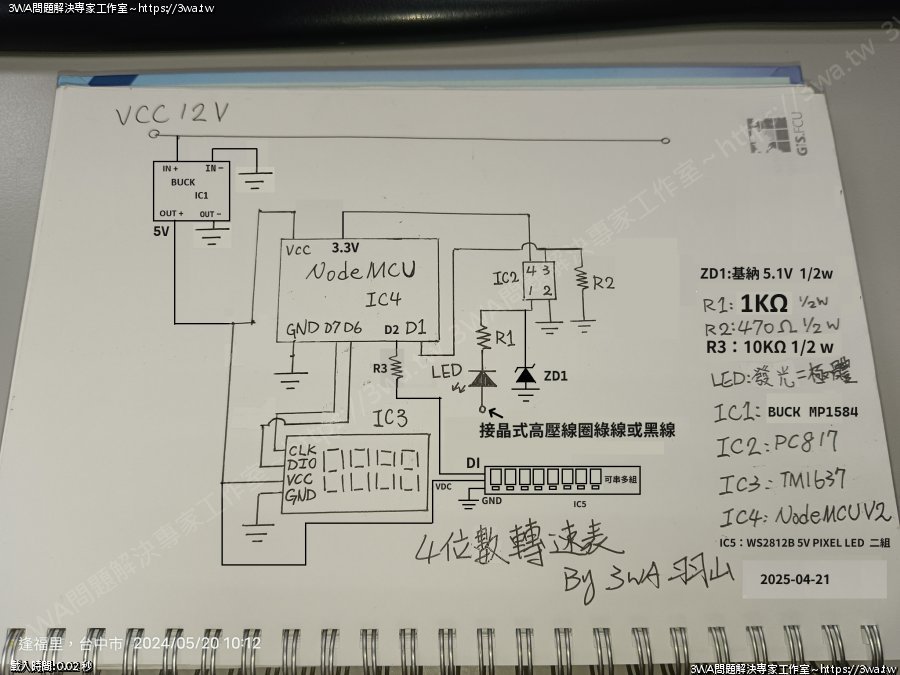 3WA問題解決專家工作室~https://3wa.tw
3WA問題解決專家工作室~https://3wa.tw
VCC 12V
GIS.FCU
IN+ IN-
BUCK
IC1
OUT+ OUT-
5V
VCC 3.3V
NodeMCU
IC4
GND D7 D6 D2 D1
IC2
4 3
1 2
R2
R1
R3
LED
ZD1
接晶式高壓線圈綠線或黑線
IC3
CLK
DIO
VCC
GND
DI
VDC
GND
可串多組
IC5
ZD1:基納 5.1V 1/2w
R1: 1KΩ 1/2W
R2:470Ω 1/2W
R3：10KΩ 1/2 w
LED:發光二極體
IC1: BUCK MP1584
IC2:PC817
IC3:TM1637
IC4:NodeMCU V2
IC5：WS2812B 5V PIXEL LED 二組
4位數轉速表
By 3WA 羽山
2025-04-21
3WA問題解決專家工作室~https://3wa.tw
逢福里，台中市 2024/05/20 10:12
載入時間:0.02 秒
3WA問題解決專家工作室~https://3wa.tw